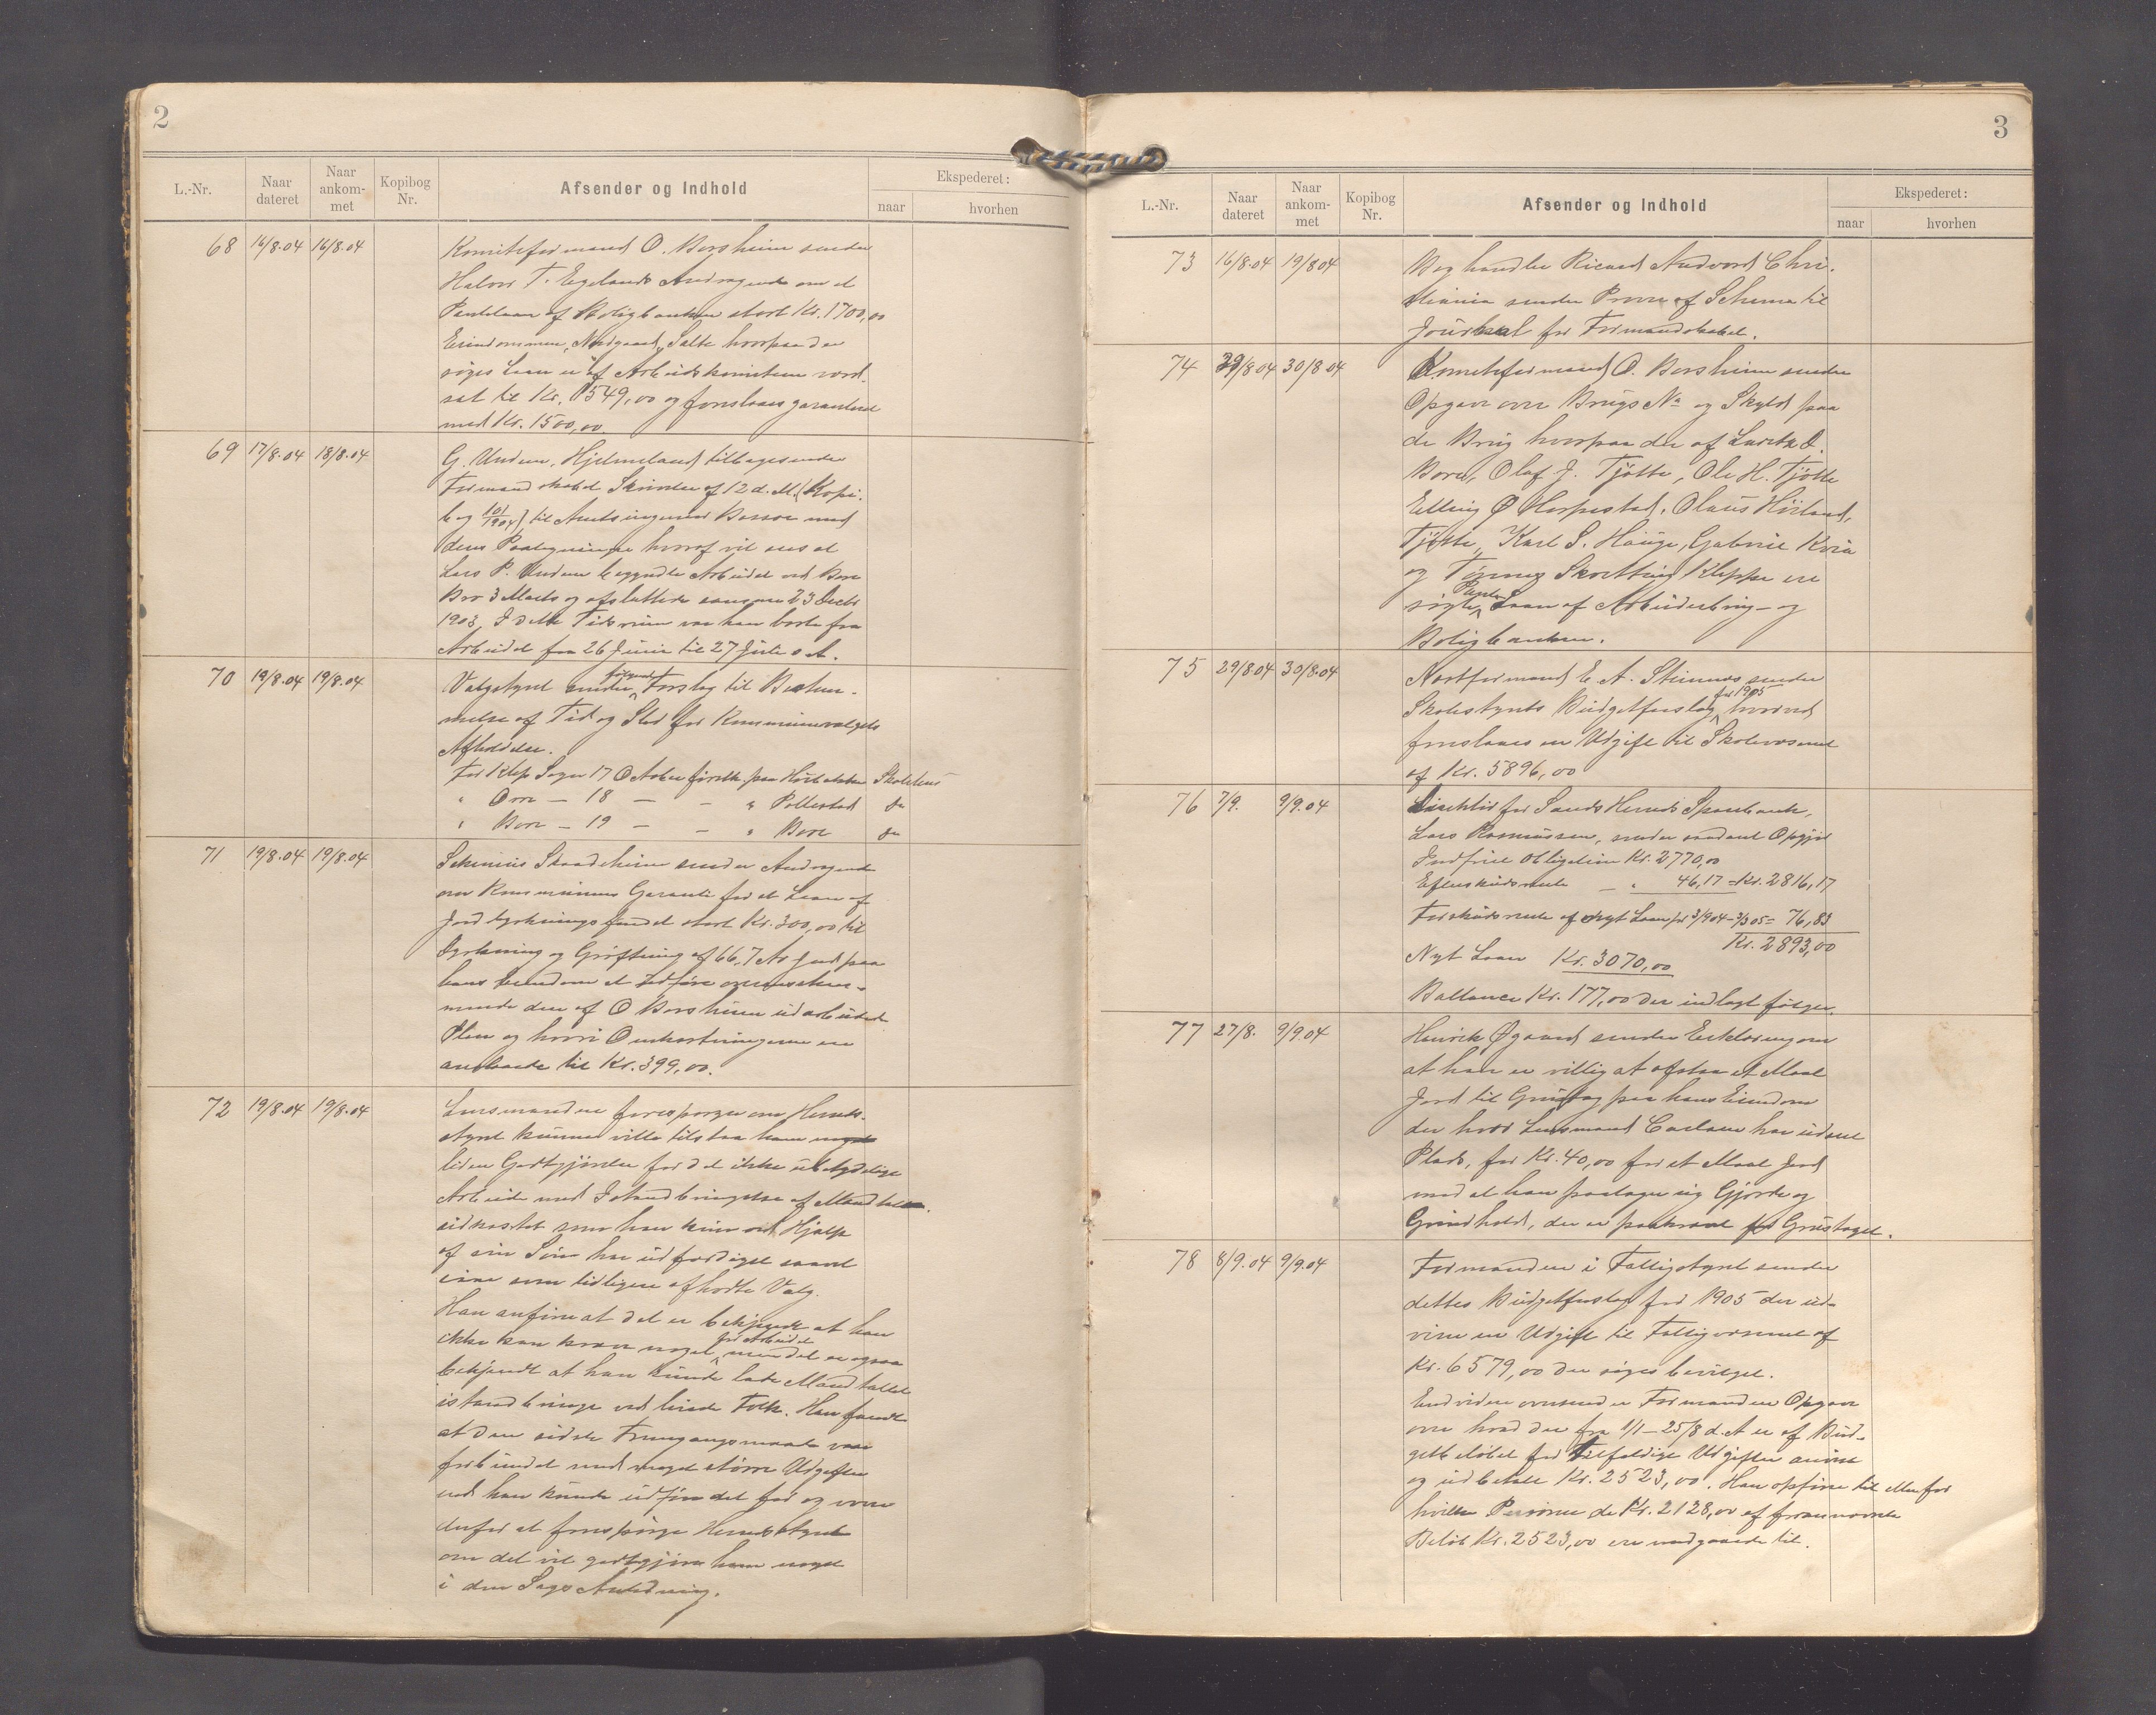 2
L.-Nr.
Naar dateret
Naar ankom-met
Kopibog Nr.
Afsender og Indhold
Ekspederet:
naar
hvorhen
68 16/8.04 16/8.04 Komiteformand O. Borsheim sender
Halvor T. Egelands Andragende om et
Pantelaan af Boligbanken stort Kr. 1700,00
Eiendommen, Nordgaard, Salte hvorpaa der
søges Laan er af Arbeidskomiteen vord-
sat til Kr. 1549,00 og foreslaaes garanteret
med Kr. 1500,00.
69 17/8.04 18/8.04 G. Undem, Hjelmeland tilbagesender
Formandskabets Skrivelse af 12 d. M. (Kopi-
bog 101/1904) til Amtsingeniør Bassøe med
dens Paategninger hvoraf vil sees at
Lars P. Undem begyndte Arbeidet ved Bore
Bro 3 Marts og afsluttede samme 23 Decbr
1903. I dette Tidsrum var han borte fra
Arbeidet fra 26 Juni til 27 Juli s. A.
70 19/8.04 19/8.04 Valgstyret sender følgende Forslag til Bestem-
melse af Tid og Sted for Kommunevalgets
Afholdelse.
For Klep Sogn 17 October førstk. paa Hørbakken Skolehus
" Orre — 18 — — " Pollestad do
" Bore — 19 — — " Bore do
71 19/8.04 19/8.04 Skadsheim sender Andragende
om Kommunens Garanti for et Laan af
Jorddyrkningsfondet stort Kr. 300,00 til
Dyrkning og Grøftning af 66,7 Ar Jord paa
hans Eiendom at udføre overensstem-
mende den af O Borsheim udarbeidede
Plan og hvori Omkostningerne er
anslaaede til Kr. 399,00.
72 19/8.04 19/8.04 Lensmanden forespørger om Herreds-
styret kunne ville tilstaa ham
liden Godtgjørelse for det ikke ubetydelige
Arbeide med Istandbringelse af Mandtallet
som han kun ved Hjælp
af sin Søn har udfærdiget saavel
som tidligere afholdte Valg.
Han anfører at det er bekjendt at han
ikke kan kræve noget for Arbeidet, men det er ogsaa
bekjendt at han kunde lade Mandtallet
istandbringe ved leiede Folk. Han fandt
at den sidste Fremgangsmaade var
forbundet med meget større Udgifter
end han kunde udføre det for og
derfor at forespørge Herredsstyret
om det vil godtgjøre ham noget
i den Sags Anledning.
3
L.-Nr.
Naar dateret
Naar ankom-met
Kopibog Nr.
Afsender og Indhold
Ekspederet:
naar
hvorhen
73 16/8.04 19/8 04 Boghandler Ricard Andvord Chri-
stiania sender Prøve af Schema til
Journal for Formandskabet.
74 29/8 04 30/8 04 Komiteformand O. Borsheim sender
Opgave over Brugs No og Skyld paa
de Brug hvorpaa der af Lauritz O.
Bore, Olaf J. Tjøtta, Ole H. Tjøtta
Elling Ø Horpestad, Olaus Hörland,
Tjøtta, Karl S. Hauge, Gabriel Kvia
og Tønnes Skretting Kleppe er
søgte Pante Laan af Arbeiderbrug- og
Boligbanken.
75 29/8 04 30/8.04 Næstformand E. A. Stensnæs sender
Skolestyrets Budgetforslag for 1905 hvorved
foreslaaes en Udgift til Skolevæsenet
af Kr. 5896,00
76 7/9. 9/9.04 Direktør for Sands Herreds Sparebank,
Lars Rasmussen, sender saadant Opgjør
Indfriet Obligation Kr. 2770,00
Efterskudsrente — " 46,17 = Kr. 2816,17
Forskudsrente af nyt Laan fr 3/9 04 – 3/3 05 = 76,83
Kr. 2893,00
Nyt Laan Kr. 3070,00
Ballance Kr. 177,00 der indlagt følger.
77 27/8. 9/9.04 Henrik Øgaard sender Erklæring om
at han er villig at afstaa et Maal
Jord til Grustag paa hans Eiendom
der hvor Lensmand Carlsen har udseet
Plads, for Kr. 40,00 for et Maal Jord
mod at han paatager sig Gjærde og
Grindhold, der er paakrævet for Grustaget.
78 8/9.04 9/9.04 Formanden i Fattigstyret sender
dettes Budgetforslag for 1905 der ud-
viser en Udgift til Fattigvæsenet af
Kr. 6579,00 der søges bevilget.
Endvidere oversender Formanden Opgave
over hvad der fra 1/1 – 25/8 d. A er af Bud-
getbeløbet for tilfældige Udgifter anvist
og udbetalt Kr. 2523,00. Han opfører til eller for
hvilke Personer de Kr. 2128,00 af forannævnte
Beløb Kr. 2523,00 ere medgaaede til.